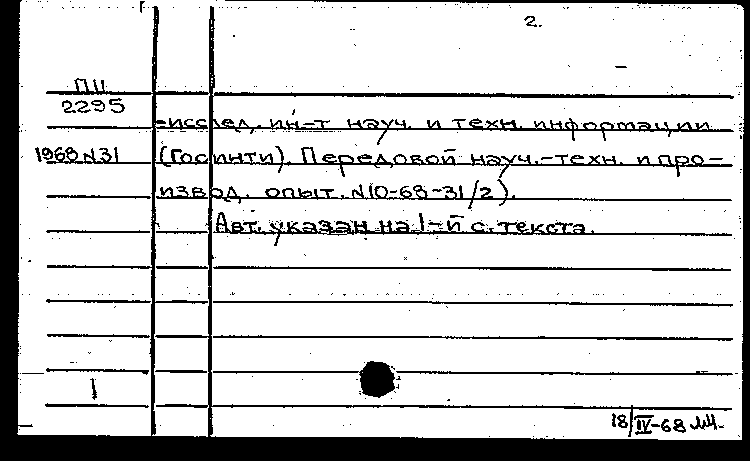 2.
П11
2295
-исслед. ин-т науч. и техн. информации
1968 N31 (Госинти). Передовой науч.-техн. и про-
извод. опыт. N10-68-31/2).
Авт. указан на 1-й с. текста.
18/IV-68